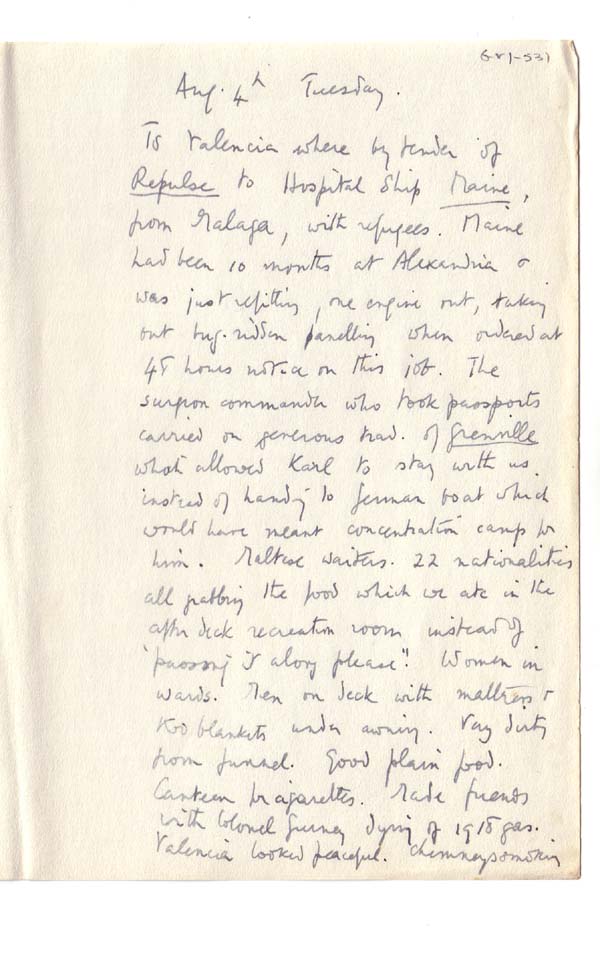 Aug. 4th Tuesday.
To Valencia where by tender of
Repulse to Hospital Ship Maine,
from Malaga, with refugees. Maine
had been 10 months at Alexandria &
was just refitting, one engine out, taking
out bug-ridden panelling when ordered at
48 hours notice on this job. The
surgeon commander who took passports
carried on generous trad. of Grenville
which allowed Karl to stay with us
instead of handing to German boat which
would have meant concentration camp for
him. Maltese waiters. 22 nationalities
all grabbing the food which we ate in the
after deck recreation room instead of
"passing it along please"! Women in
wards. Men on deck with mattress &
blankets under awning. Very dirty
from funnel. Good plain food.
Canteen for cigarettes. Made friends
with Colonel Gurney dying of 1918 gas.
Valencia looked peaceful. Chimneys smoking